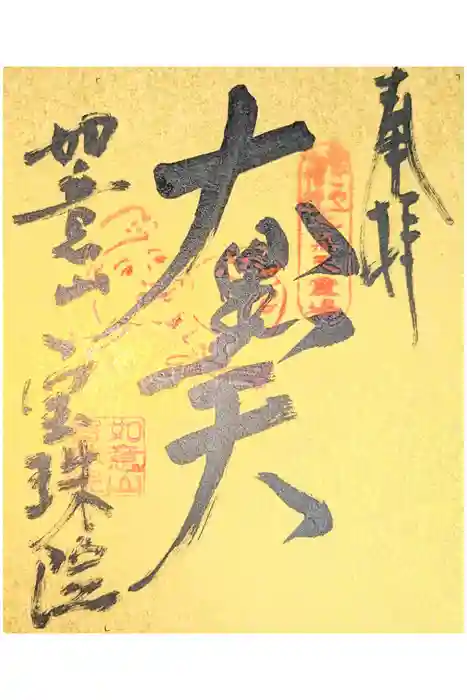 奉拝
大黒天
如意山
宝珠院
如意山